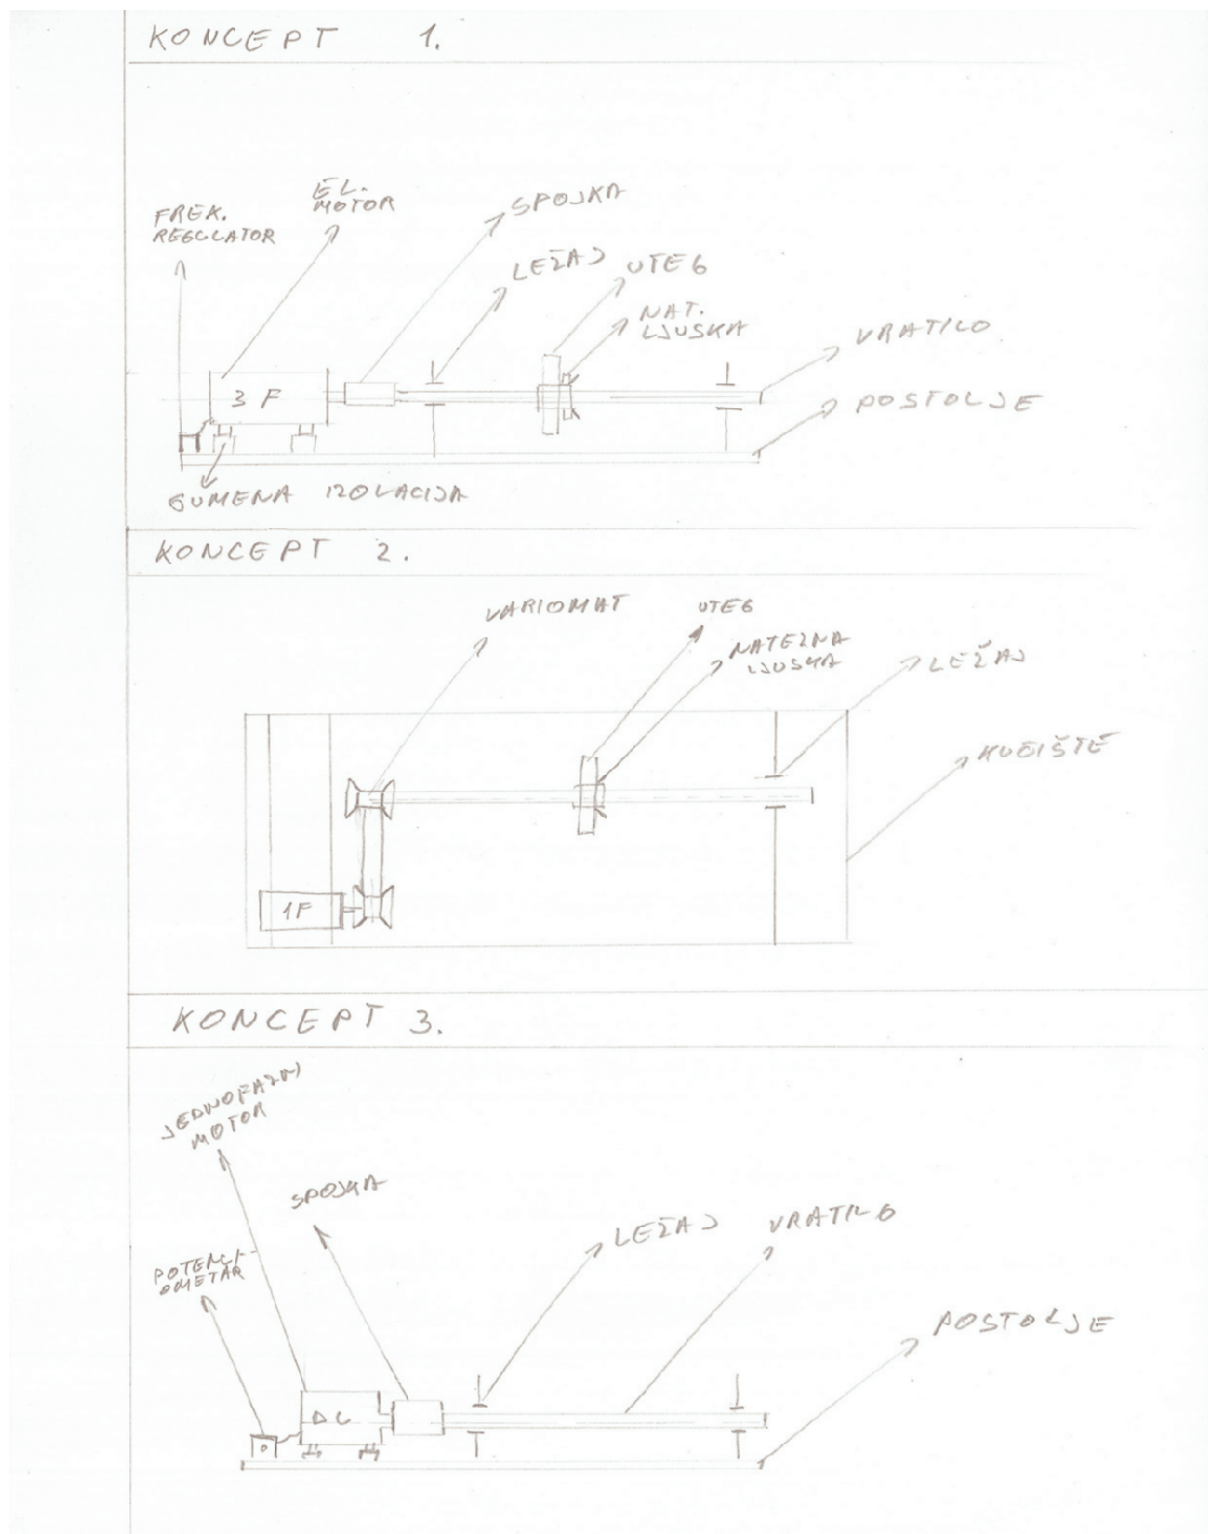 KONCEPT 1.
FREK.
REGULATOR
EL.
MOTOR
SPOJKA
LEŽAJ
UTEG
NAT.
LJUSKA
VRATILO
POSTOLJE
3F
GUMENA IZOLACIJA
KONCEPT 2.
VARIOMAT
UTEG
NATEZNA
LJUSKA
LEŽAJ
KUĆIŠTE
1F
KONCEPT 3.
JEDNOFAZNI
MOTOR
SPOJKA
POTENCI-
OMETAR
LEŽAJ
VRATILO
POSTOLJE
DC